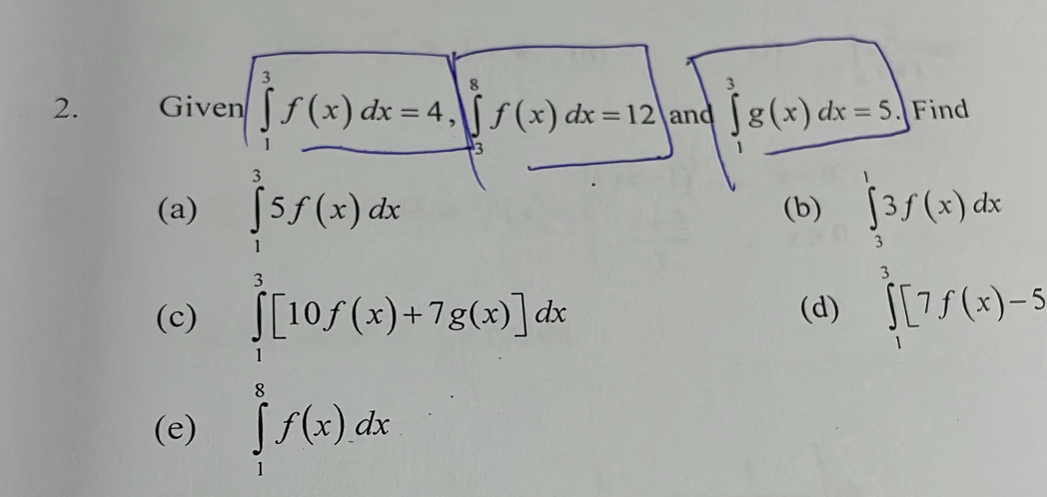 2. Given ∫₁³ f(x) dx = 4, ∫₃⁸ f(x) dx = 12 and ∫₁³ g(x) dx = 5. Find
(a) ∫₁³ 5f(x) dx (b) ∫₃¹ 3f(x) dx
(c) ∫₁³ [10f(x)+7g(x)] dx (d) ∫₁³ [7f(x)−5
(e) ∫₁⁸ f(x) dx